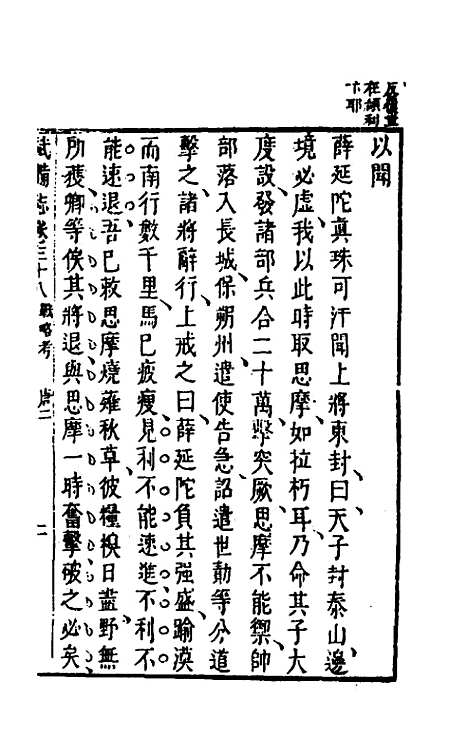 在頡利
下耶
以聞
薛延陀真珠可汗聞上將東封曰天子封泰山邊
境必虛我以此時取思摩如拉朽耳乃命其子大
度設發諸部兵合二十萬擊突厥思摩不能禦帥
部落入長城保朔州遣使告急詔遣世勣等分道
擊之諸將辭行上戒之曰薛延陀負其強盛踰漠
而南行數千里馬已疲瘦見利不能速進不利不
能速退吾已敕思摩燒薙秋草彼糧糗日盡野無
所獲卿等俟其將退與思摩一時奮擊破之必矣
武備志卷三十八 戰略考 唐二 二